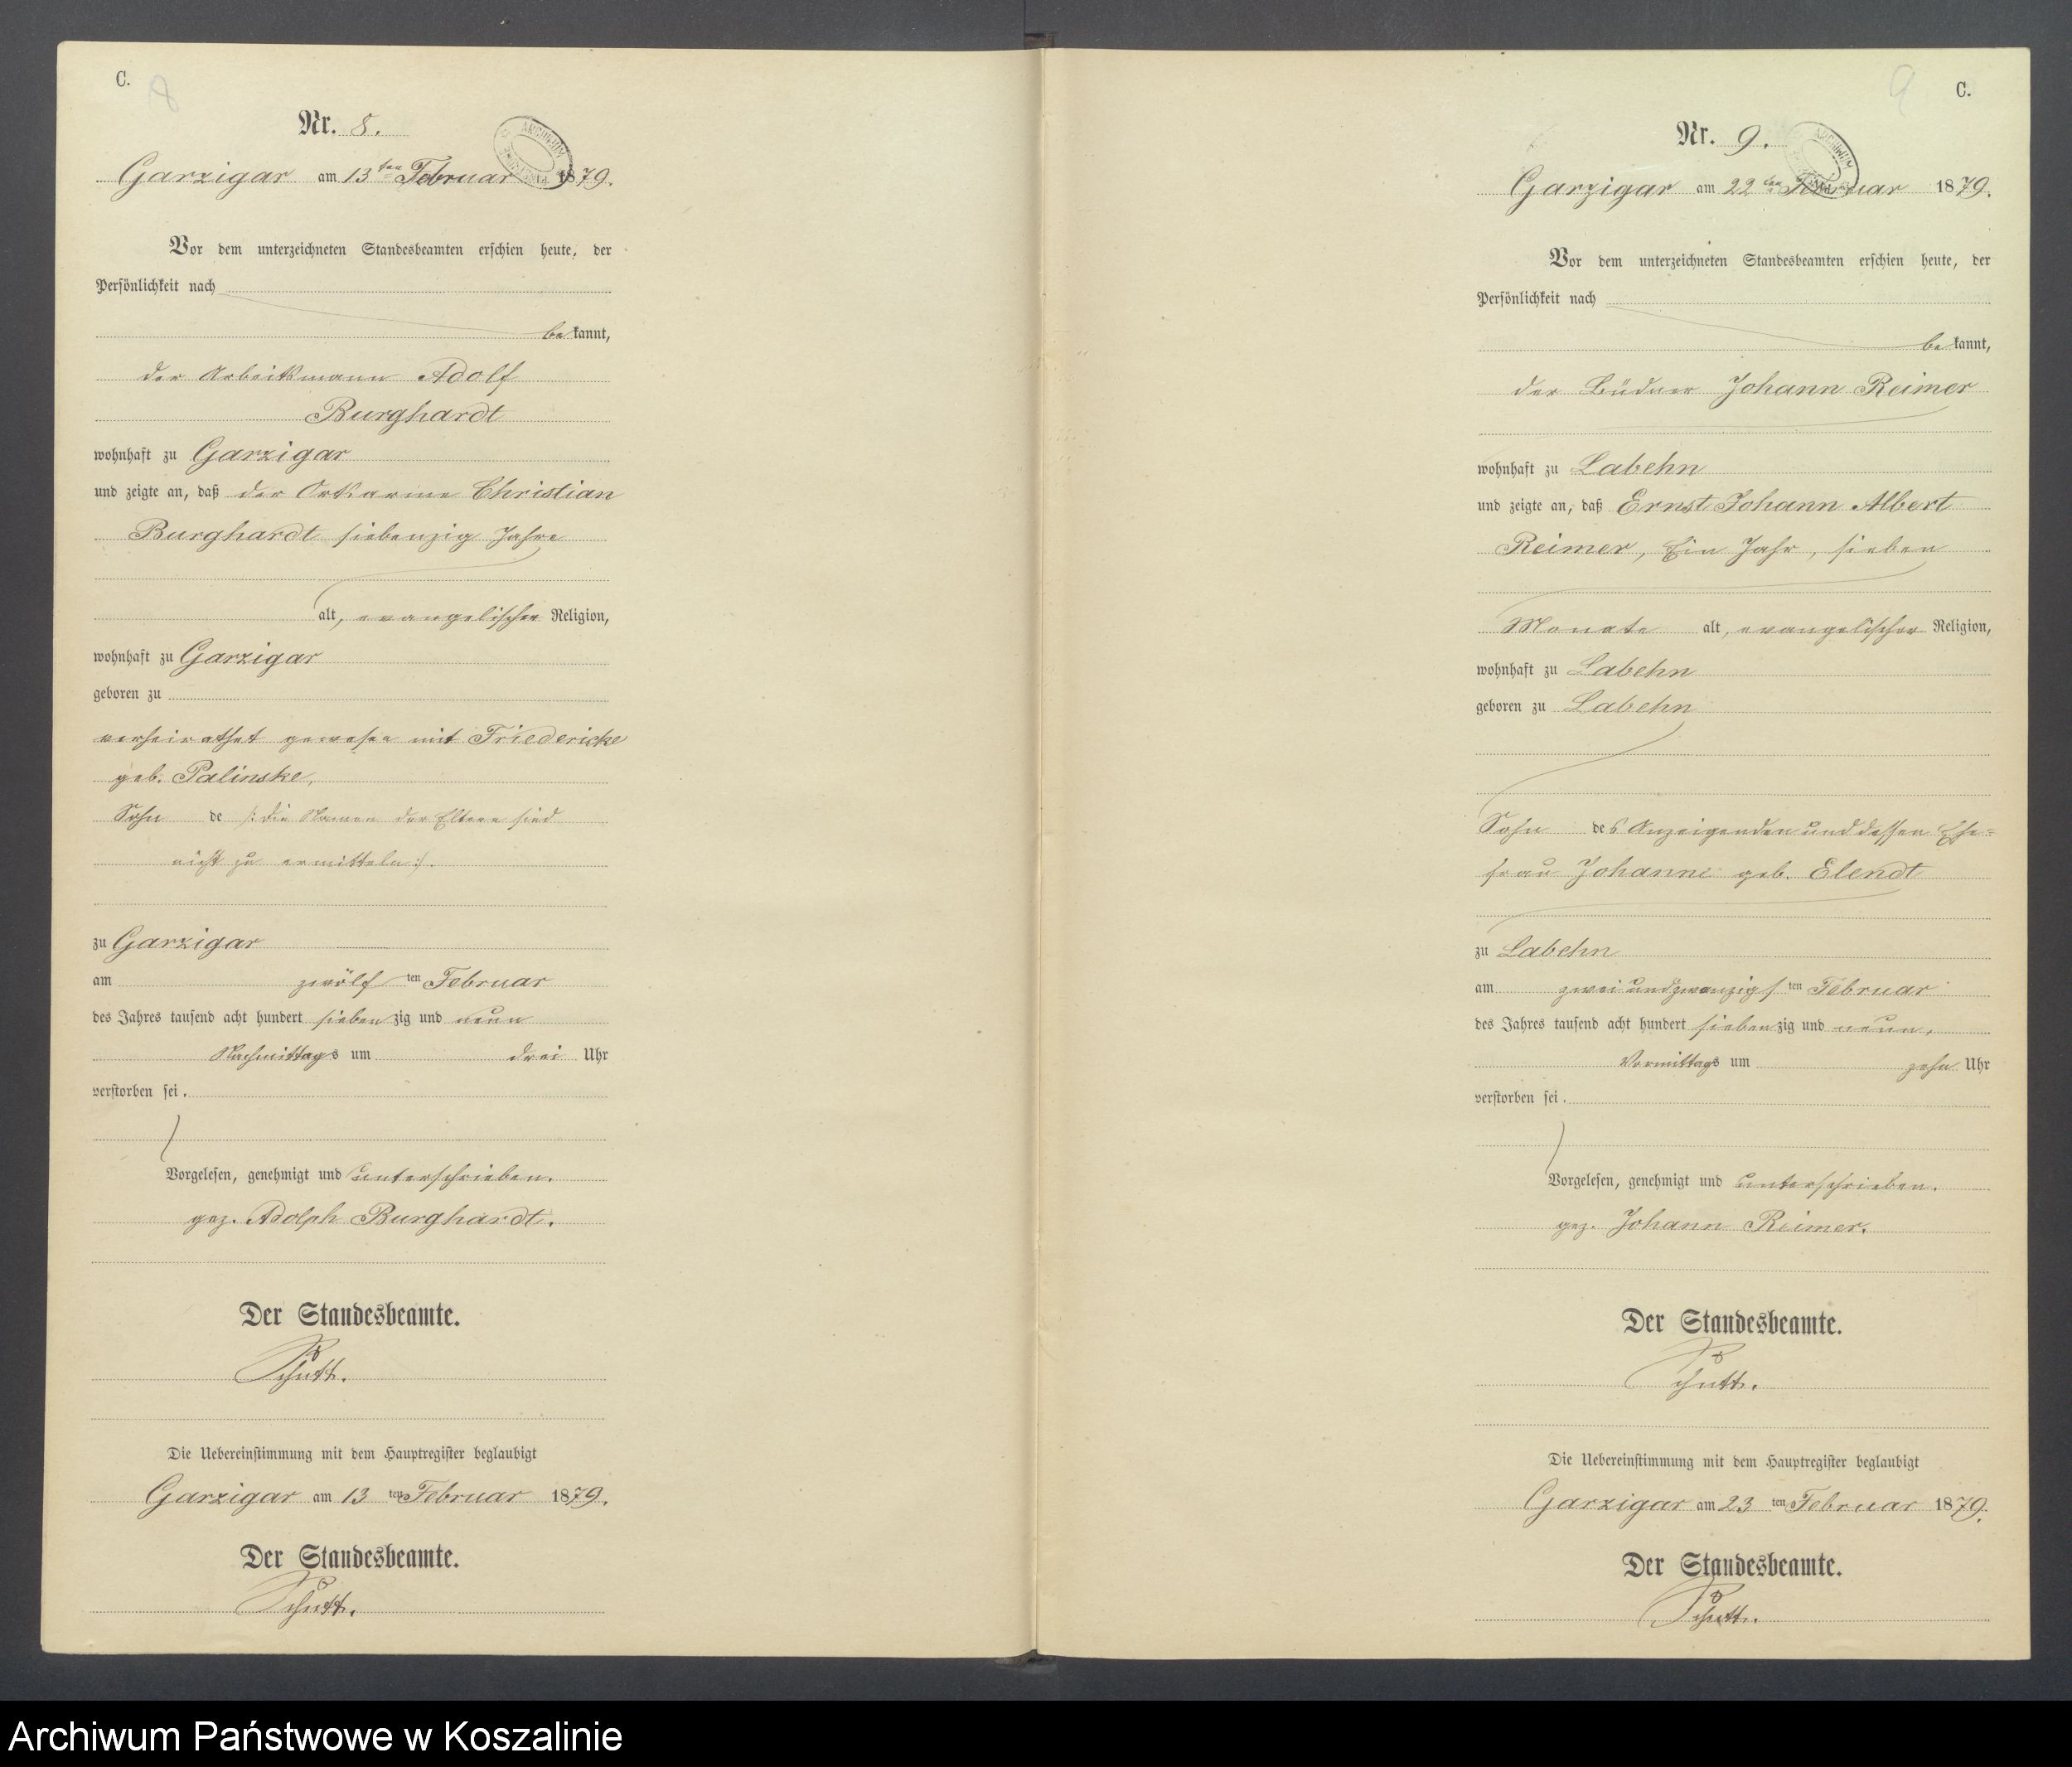 C.
8
Nr. 8.
Garzigar am 13ten Februar 1879.
Vor dem unterzeichneten Standesbeamten erschien heute, der
Persönlichkeit nach
bekannt,
der Arbeitsmann Adolf
Burghardt
wohnhaft zu Garzigar
und zeigte an, daß der Ortsarme Christian
Burghardt siebenzig Jahre
alt, evangelischer Religion,
wohnhaft zu Garzigar
geboren zu
verheirathet gewesen mit Friedericke
geb. Palinske,
Sohn de /: die Namen der Eltern sind
nicht zu ermitteln :/.
zu Garzigar
am zwölf ten Februar
des Jahres tausend acht hundert siebenzig und neun
Nachmittags um drei Uhr
verstorben sei.
Vorgelesen, genehmigt und unterschrieben.
gez. Adolph Burghardt.
Der Standesbeamte.
Schutt.
Die Uebereinstimmung mit dem Hauptregister beglaubigt
Garzigar am 13 ten Februar 1879.
Der Standesbeamte.
Schutt.
9
C.
Nr. 9.
Garzigar am 22ten Februar 1879.
Vor dem unterzeichneten Standesbeamten erschien heute, der
Persönlichkeit nach
bekannt,
der Büdner Johann Reimer
wohnhaft zu Labehn
und zeigte an, daß Ernst Johann Albert
Reimer, Ein Jahr, sieben
Monate alt, evangelischer Religion,
wohnhaft zu Labehn
geboren zu Labehn
Sohn des Anzeigenden und dessen Ehe=
frau Johanne geb. Elendt
zu Labehn
am zwei und zwanzigs ten Februar
des Jahres tausend acht hundert siebenzig und neun,
Vormittags um zehn Uhr
verstorben sei.
Vorgelesen, genehmigt und unterschrieben.
gez. Johann Reimer.
Der Standesbeamte.
Schutt.
Die Uebereinstimmung mit dem Hauptregister beglaubigt
Garzigar am 23 ten Februar 1879.
Der Standesbeamte.
Schutt.
Archiwum Państwowe w Koszalinie